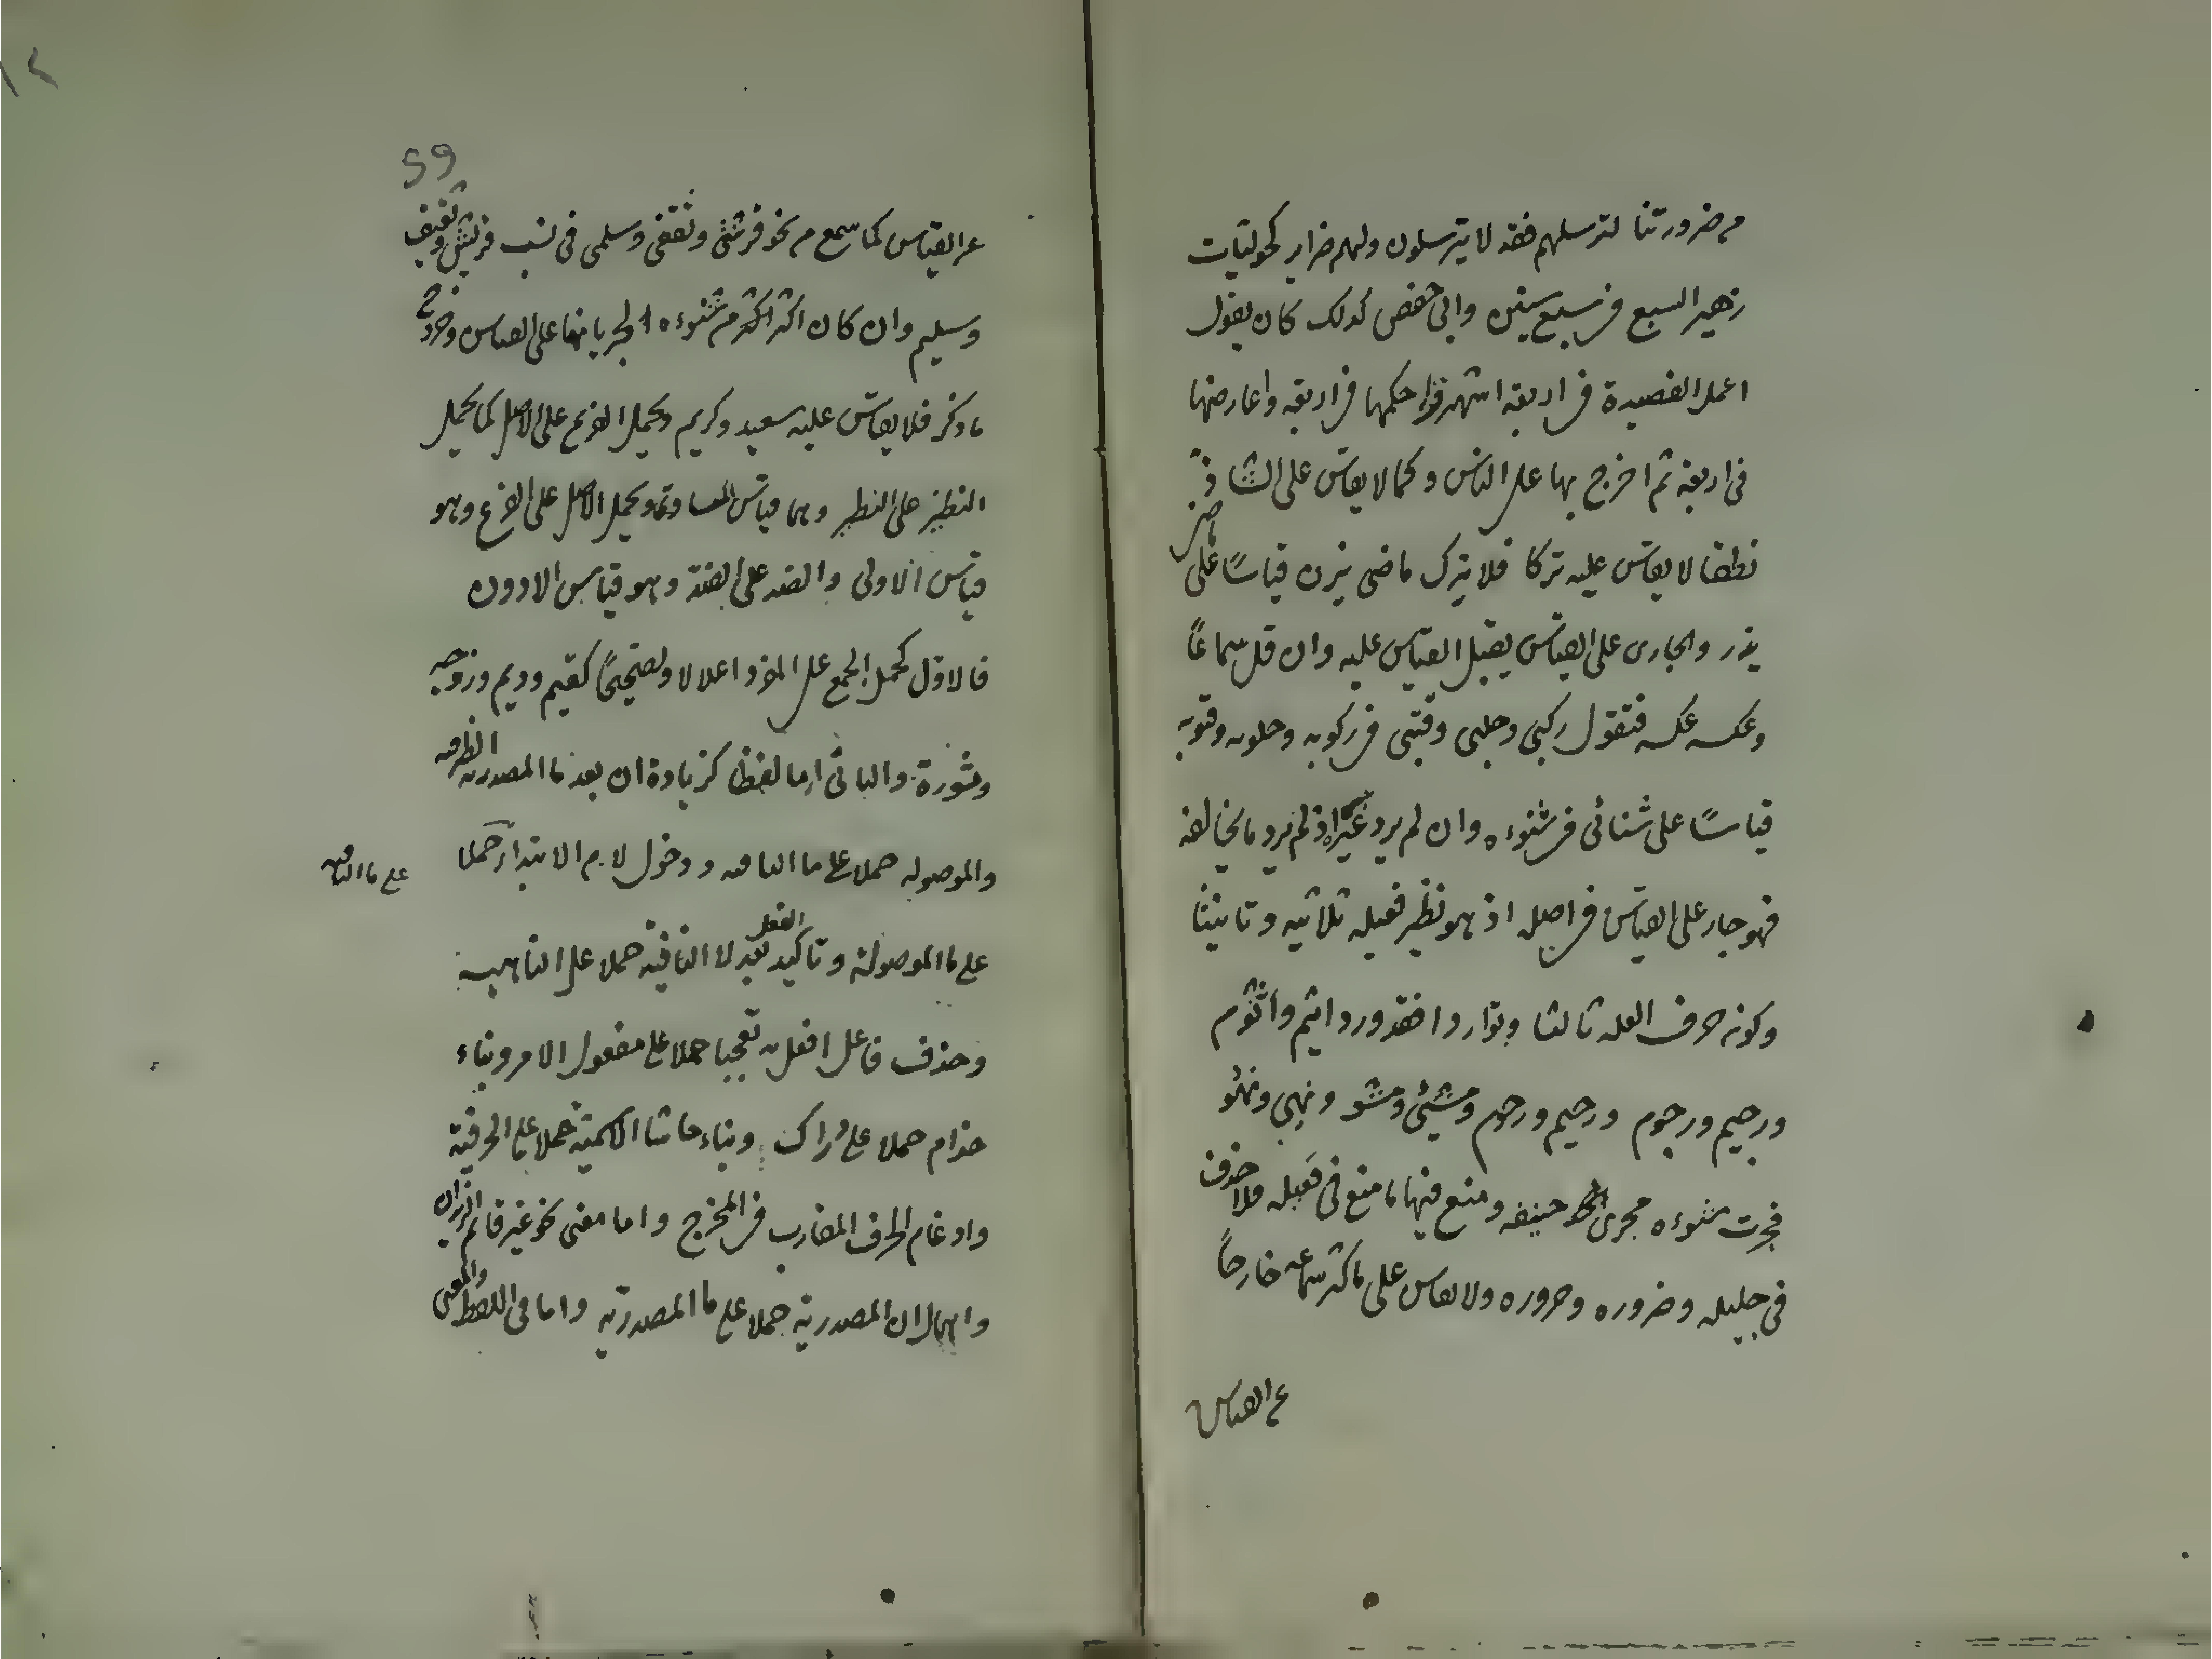 من ضرورتنا لترسلهم فقد لا يترسلون ولهم ضراير كحوليات
زهير السبع في سبع سنين وابي حفص كذلك كان يقول
اعمل القصيدة في اربعة اشهر واحكمها في اربعة واعارضها
في اربعة ثم اخرج بها على الناس وكما لا يقاس على الشاذ
نطقا لا يقاس عليه تركا فلا يترك ماضي يزن قياسًا على ماضي
يذر والجاري على القياس يقبل القياس عليه وان قل سماعًا
وعكسه عكسه فتقول ركبي وحلبي وقتبي في ركوبه وحلوبه وقتوبه
قياسًا على شنائي في شنوءه وان لم يرد غيره اذ لم يرد ما يخالفه
فهو جار على القياس في اصله اذ هو نظير فعيله ثلاثيه وتانيثا
وكونه حرف العله ثالثا وتواردا فقد ورد اثيم واثوم
ورجيم ورجوم ورحيم ورحوم ومشيئ ومشو ونهي ونهو
فجرت شنوءه مجرى حنيفه ومنع فيها ما منع في فعيله فلا حذف
في جليله وضروره وحروره ولا يقاس على ما كثر سماعه خارجًا
عن القياس
59
عن القياس كما سمع من نحو قرشي وثقفي وسلمي في نسب قريش وثقيف
وسليم وان كان اكثر من شنوءه لجريانها على القياس وخروج
ما ذكر فلا يقاس عليه سعيد وكريم ويحمل الفرع على الاصل كما يحمل
النظير على النظير وهما قياس المساواة ويحمل الاصل على الفرع وهو
قياس الاولى والضد على الضد وهو قياس الادون
فالاول كحمل الجمع على المفرد اعلالا وتصحيحًا كقيم وديم وزوجه
وثورة والثاني اما لفظا كزيادة ان بعد ما المصدريه الظرفيه
والموصوله حملا على ما النافيه ودخول لام الابتداء حملا
على ما النافيه
على ما الموصولة وتاكيد الفعل بعد لا النافية حملا على الناهيه
وحذف فاعل افعل به تعجبا حملا على مفعول الامر وبناء
حذام حملا على دراك وبناء حاشا الاسمية حملا على الحرفية
وادغام الحرف المقارب في المخرج واما معنى نحو غير قائم الزيدان
واهمال ان المصدرية حملا على ما المصدرية واما في اللفظ والمعنى